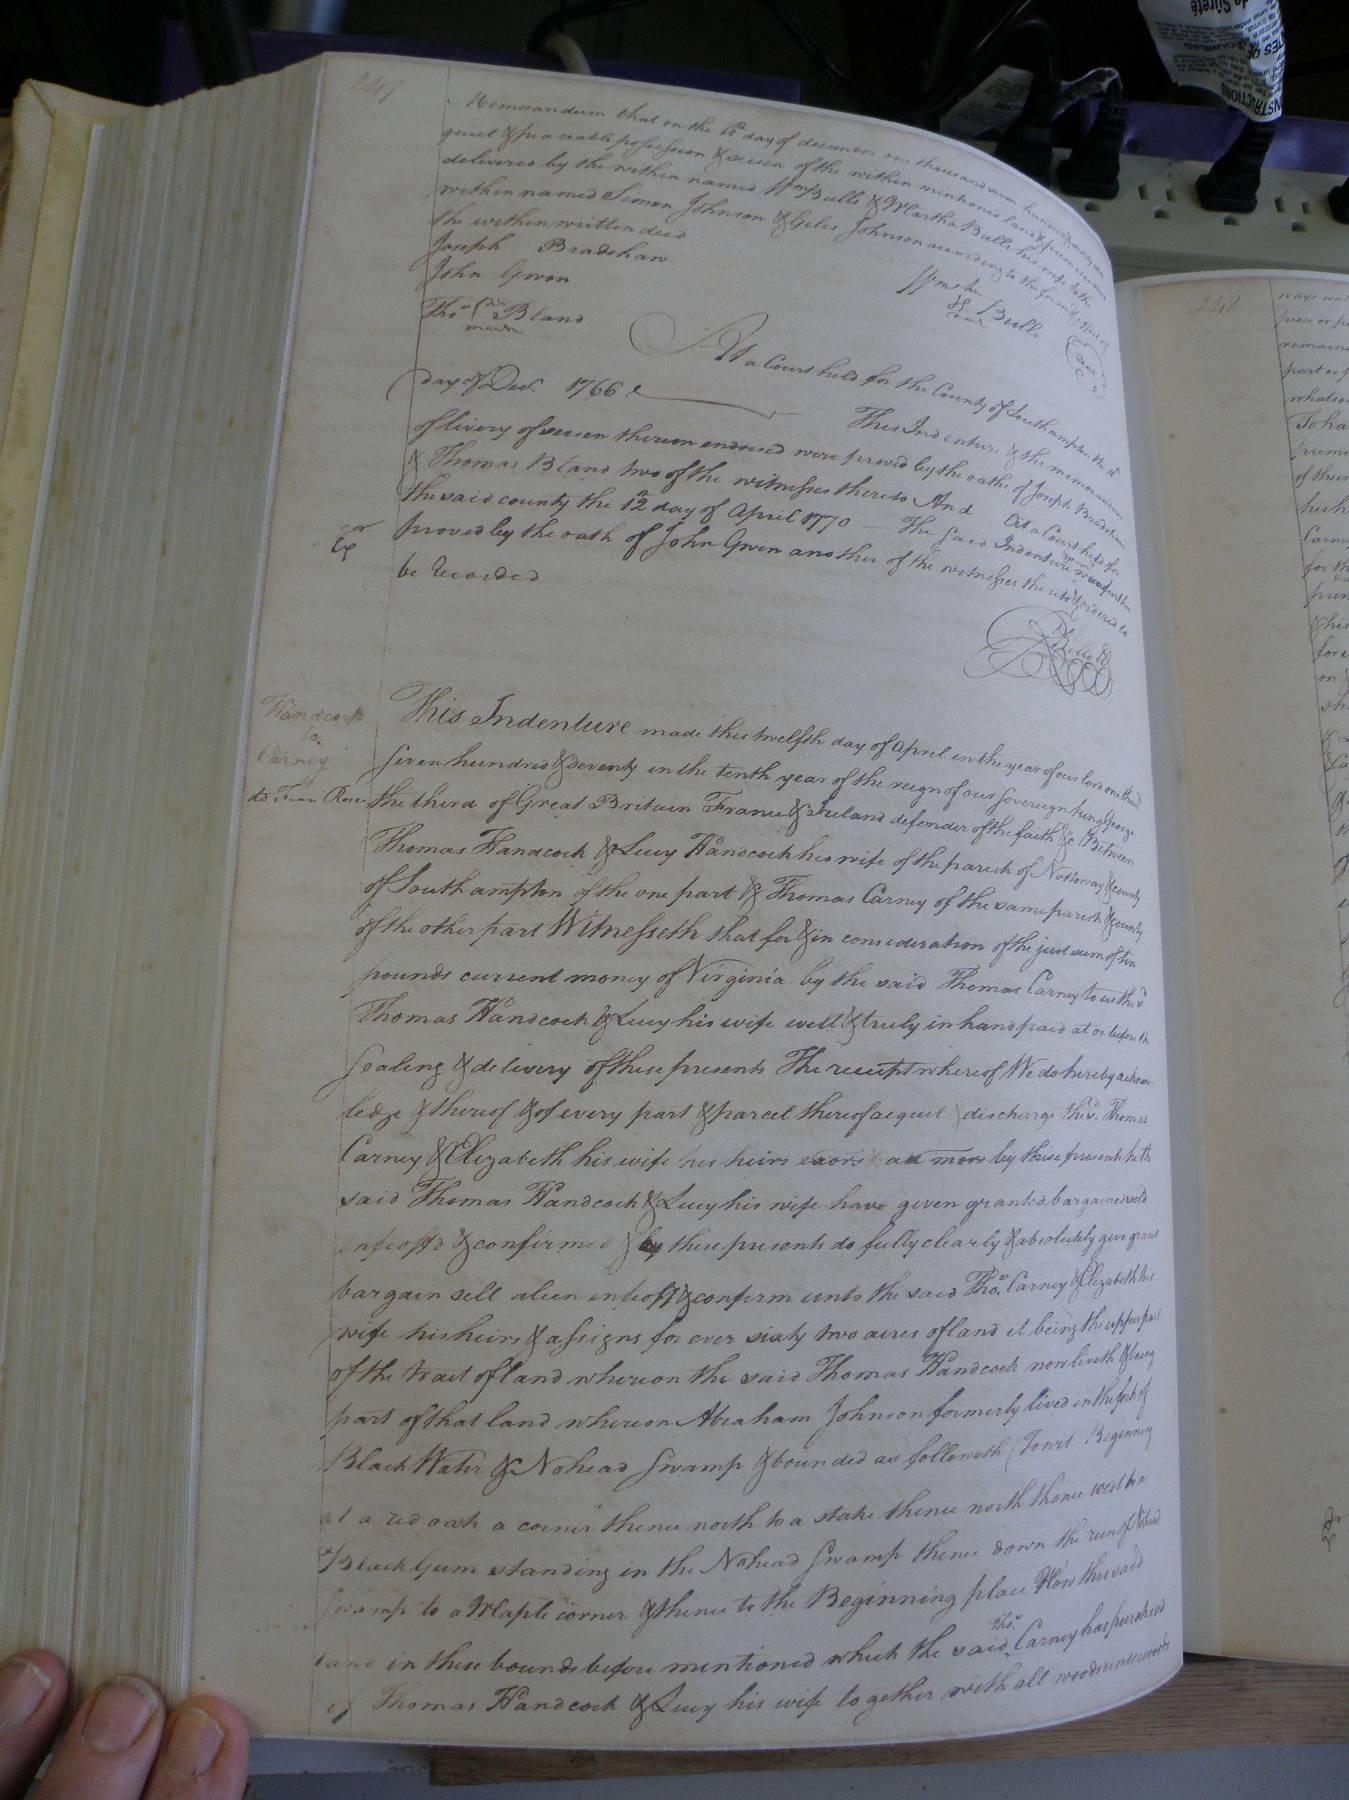 247
Memorandum that on the 10th day of december one thousand seven hundred & sixty six
quiet & peaceable possession & seisen of the within mentioned land & premises was
delivered by the within named Wm Bulls & Martha Bulls his wife to the
within named Simon Johnson & Giles Johnson according to the form & effect of
the within written deed
Joseph Bradshaw
John Gwin
Thos his Bland
mark
Wm his Bulls
mark
At a Court held for the County of Southampton the 11
day of Decr. 1766
This Indenture & the memorandum
of livery of seisen thereon endorsed were proved by the oaths of Joseph Bradshaw
& Thomas Bland two of the witnesses thereto And At a Court held for
the said county the 12th day of April 1770 The said Indenture was further
proved by the oath of John Gwin another of the witnesses thereto & ordered to
be Recorded
Ex
Handcock
to
Carney
dd Fran Rose
This Indenture made this twelfth day of April in the year of our lord one thousd
Seven hundred & seventy in the tenth year of the reign of our Sovereign king George
the third of Great Britain France & Ireland defender of the faith &c Between
Thomas Handcock & Lucy Handcock his wife of the parish of Nottoway & county
of Southampton of the one part & Thomas Carney of the same parish & county
of the other part Witnesseth that for & in consideration of the just sum of ten
pounds current money of Virginia by the said Thomas Carney to us the sd
Thomas Handcock & Lucy his wife well & truly in hand paid at or before the
Sealing & delivery of these presents The receipt whereof We do hereby acknow-
ledge & thereof & of every part & parcel thereof acquit & discharge the sd. Thomas
Carney & Elizabeth his wife his heirs exors & admors by these presents he the
said Thomas Handcock & Lucy his wife have given granted bargained sold
enfeoffd & confirmed & by these presents do fully clearly & absolutely give grant
bargain sell alien enfeoff & confirm unto the said Thos. Carney & Elizabeth his
wife his heirs & assigns for ever sixty two acres of land it being the upper part
of the tract of land whereon the said Thomas Handcock now liveth & being
part of that land whereon Abraham Johnson formerly lived in the fork of
Black Water & Nohead Swamp & bounded as followeth (Towit Beginning
at a red oak a corner thence north to a stake thence north thence west to a
Black Gum standing in the Nohead Swamp thence down the run of Nohead
Swamp to a Maple corner & thence to the Beginning place Now this said
land in these bounds before mentioned which the said Thos. Carney has purchased
of Thomas Handcock & Lucy his wife together with all woods underwoods
248
ways wat
remain
part or p
whatso
To ha
of thei
Carney
for th